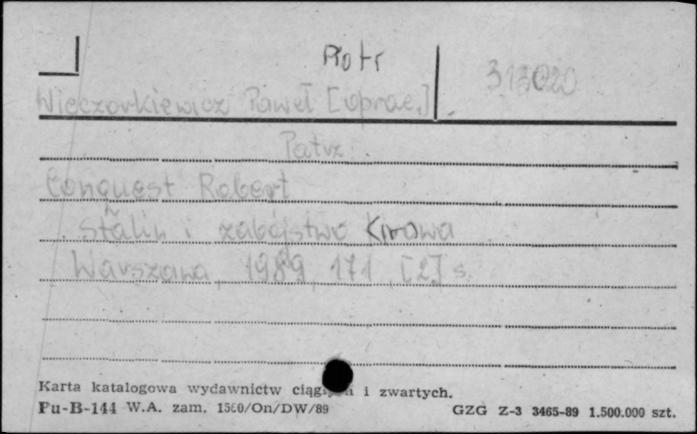 Piotr
313020
Wieczorkiewicz Paweł [oprac.]
Patrz.
Conquest Robert
Stalin i zabójstwo Kirowa
Warszawa, 1989, 171, [2] s.
Karta katalogowa wydawnictw i zwartych.
Pu-B-144 W.A. zam. 1560/On/DW/89
GZG Z-3 3465-89 1.500.000 szt.